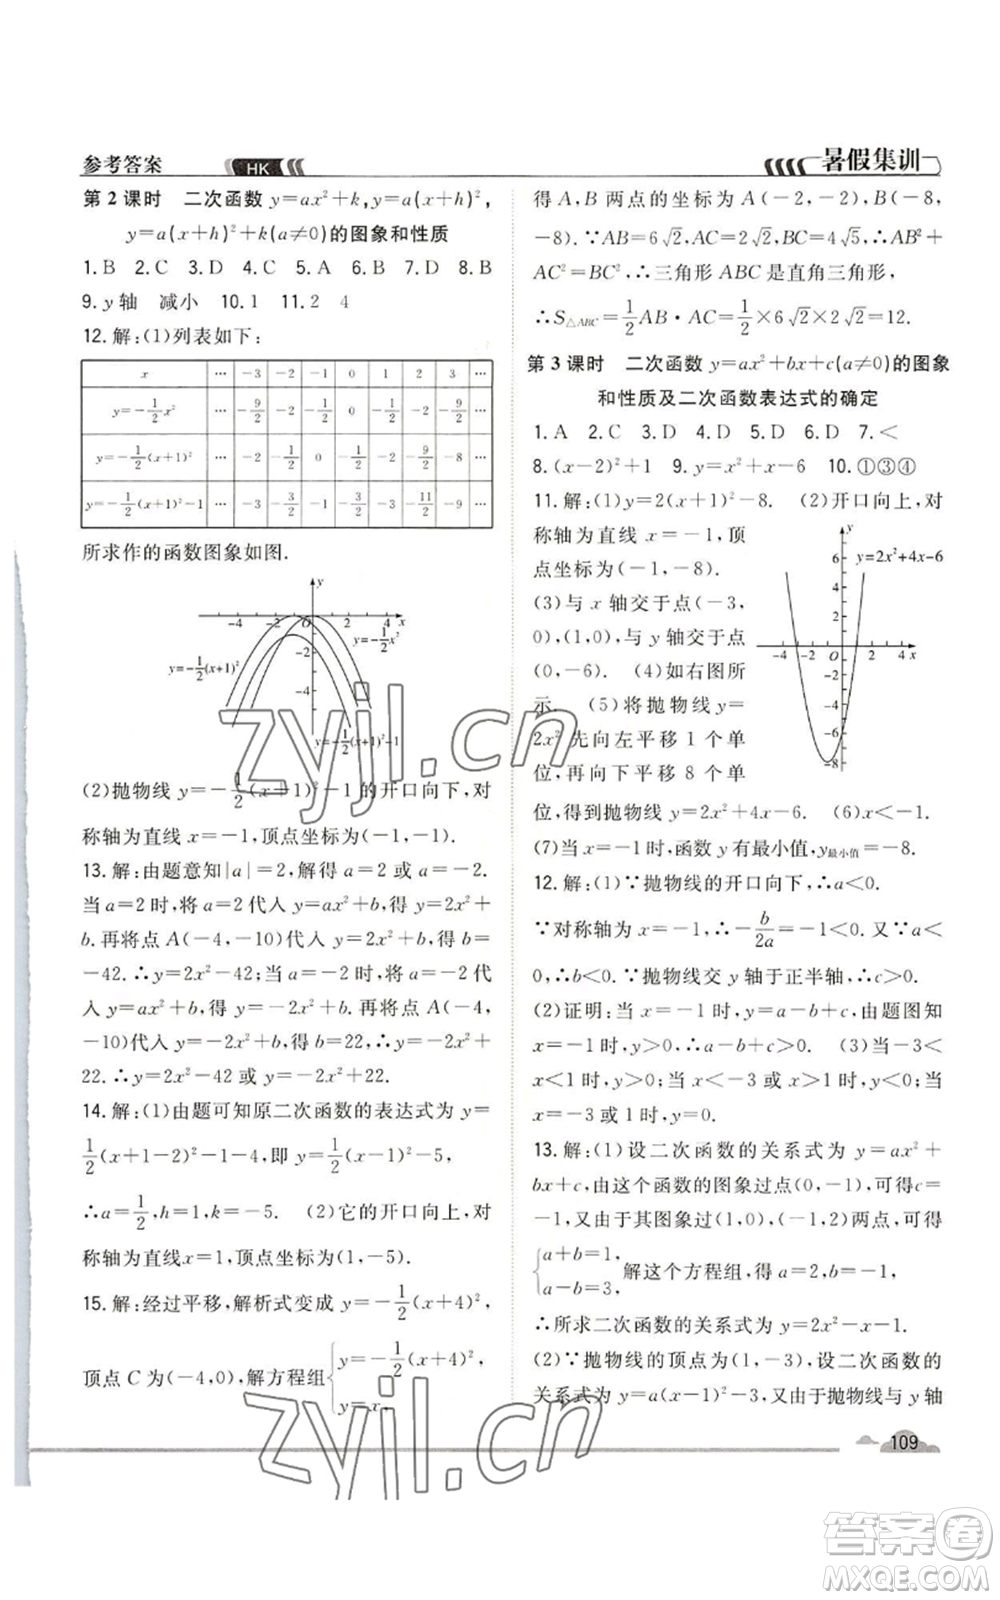 参考答案
HK
暑假集训
第2课时 二次函数 y=ax²+k,y=a(x+h)²,
y=a(x+h)²+k(a≠0)的图象和性质
1.B 2.C 3.D 4.C 5.A 6.D 7.D 8.B
9.y轴 减小 10.1 11.2 4
12.解:(1)列表如下:
x … -3 -2 -1 0 1 2 3 …
y=-1/2x² … -9/2 -2 -1/2 0 -1/2 -2 -9/2 …
y=-1/2(x+1)² … -2 -1/2 0 -1/2 -2 -9/2 -8 …
y=-1/2(x+1)²-1 … -3 -3/2 -1 -3/2 -3 -11/2 -9 …
所求作的函数图象如图.
y
-4 -2 O 2 4 x
-2
-4
y=-1/2x²
y=-1/2(x+1)²
y=-1/2(x+1)²-1
(2)抛物线 y=-1/2(x+1)²-1 的开口向下,对
称轴为直线 x=-1,顶点坐标为(-1,-1).
13.解:由题意知|a|=2,得 a=2 或 a=-2.
当 a=2 时,将 a=2 代入 y=ax²+b,得 y=2x²+
b.再将点 A(-4,-10)代入 y=2x²+b,得 b=
-42.∴y=2x²-42;当 a=-2 时,将 a=-2 代
入 y=ax²+b,得 y=-2x²+b.再将点 A(-4,
-10)代入 y=-2x²+b,得 b=22,∴y=-2x²+
22.∴y=2x²-42 或 y=-2x²+22.
14.解:(1)由题可知原二次函数的表达式为 y=
1/2(x+1-2)²-1-4,即 y=1/2(x-1)²-5,
∴a=1/2,h=1,k=-5. (2)它的开口向上,对
称轴为直线x=1,顶点坐标为(1,-5).
15.解:经过平移,解析式变成 y=-1/2(x+4)²,
顶点 C 为(-4,0),解方程组{y=-1/2(x+4)²,
y=x,
得 A,B 两点的坐标为 A(-2,-2),B(-8,
-8).∵AB=6√2,AC=2√2,BC=4√5,∴AB²+
AC²=BC²,∴三角形 ABC 是直角三角形,
∴S△ABC=1/2AB·AC=1/2×6√2×2√2=12.
第3课时 二次函数 y=ax²+bx+c(a≠0)的图象
和性质及二次函数表达式的确定
1.A 2.C 3.D 4.D 5.D 6.D 7.<
8.(x-2)²+1 9.y=x²+x-6 10.①③④
11.解:(1)y=2(x+1)²-8. (2)开口向上,对
称轴为直线 x=-1,顶
点坐标为(-1,-8).
(3)与 x 轴交于点(-3,
0),(1,0),与 y 轴交于点
(0,-6). (4)如右图所
示. (5)将抛物线 y=
2x² 先向左平移 1 个单
位,再向下平移 8 个单
y
y=2x²+4x-6
-4 -2 O 2 4 x
-2
-4
-6
-8
位,得到抛物线 y=2x²+4x-6. (6)x<-1.
(7)当 x=-1时,函数 y 有最小值,y最小值=-8.
12.解:(1)∵抛物线的开口向下,∴a<0.
∵对称轴为 x=-1,∴-b/2a=-1<0.又∵a<
0,∴b<0.∵抛物线交 y 轴于正半轴,∴c>0.
(2)证明:当 x=-1 时,y=a-b+c,由题图知
x=-1 时,y>0,∴a-b+c>0. (3)当-3<
x<1 时,y>0;当 x<-3 或 x>1 时,y<0;当
x=-3 或 1 时,y=0.
13.解:(1)设二次函数的关系式为 y=ax²+
bx+c,由这个函数的图象过点(0,-1),可得c=
-1,又由于其图象过(1,0),(-1,2)两点,可得
{a+b=1,
a-b=3, 解这个方程组,得 a=2,b=-1,
∴所求二次函数的关系式为 y=2x²-x-1.
(2)∵抛物线的顶点为(1,-3),设二次函数的
关系式为 y=a(x-1)²-3,又由于抛物线与 y 轴
109
zyjl.cn
zyjl.cn
答案圈
MXQE.COM